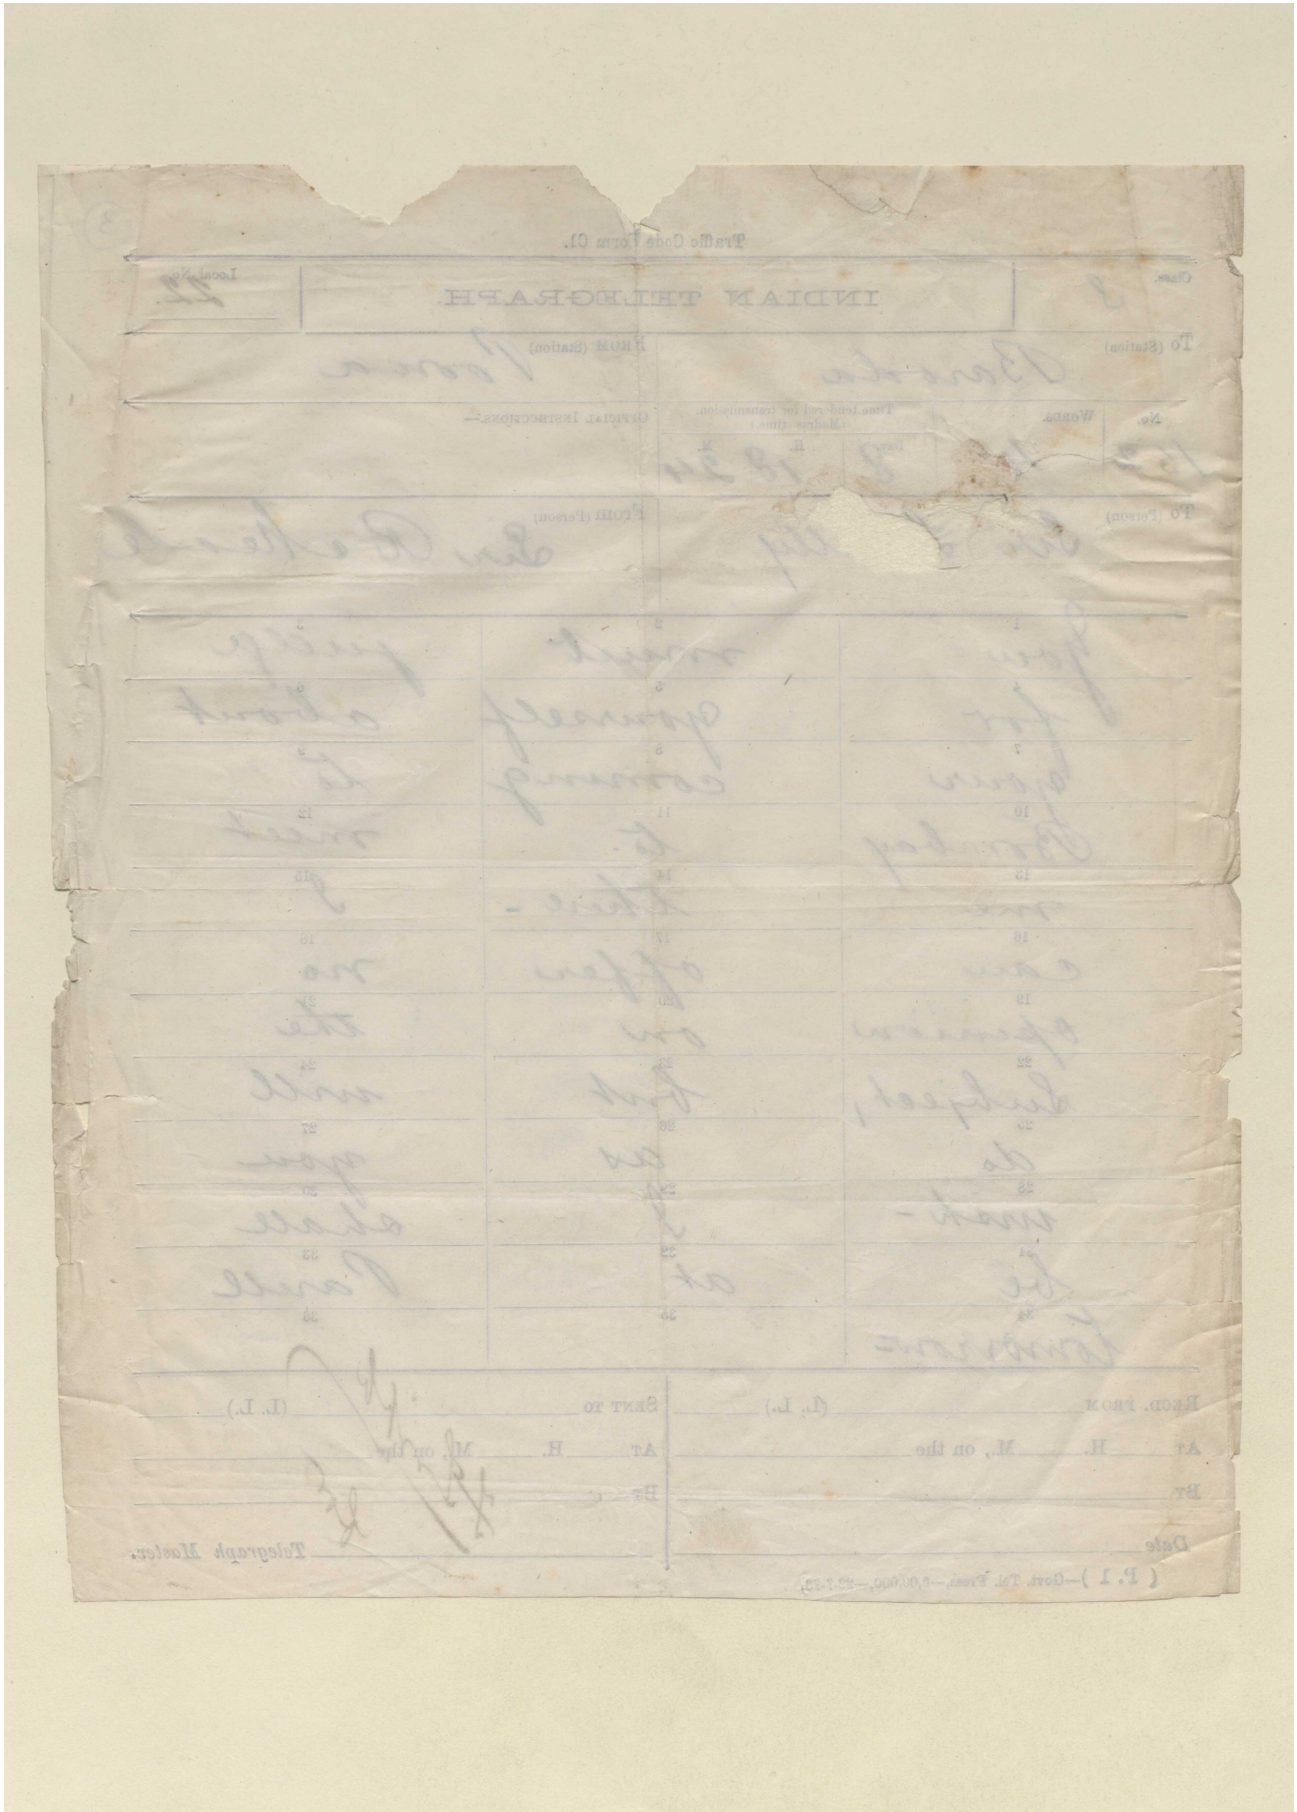 Traffic Code Form C1.
Class. Local No. 22.
INDIAN TELEGRAPH.
To (Station) Baroda FROM (Station) Poona
No. Words. Time tendered for transmission. (Madras time) OFFICIAL INSTRUCTIONS:—
Day 8 H. 18 M. 24
To (Person) FROM (Person) Sir R
1 You 2 must 3 judge
4 for 5 yourself 6 about
7 your 8 coming 9 to
10 Bombay 11 to 12 meet
13 me 14 there - 15 I
16 can 17 offer 18 no
19 opinion 20 on 21 the
22 Subject, 23 but 24 will
25 do 26 as 27 you
28 wish - 29 I 30 shall
31 be 32 at 33 Parell
34 tomorrow = 35 36
RECD. FROM (L. L.) SENT TO (L. L.)
AT H. M., on the AT H. M., on the
BY BY
Date Telegraph Master.
( P. 1 )—Govt. Tel. Press,